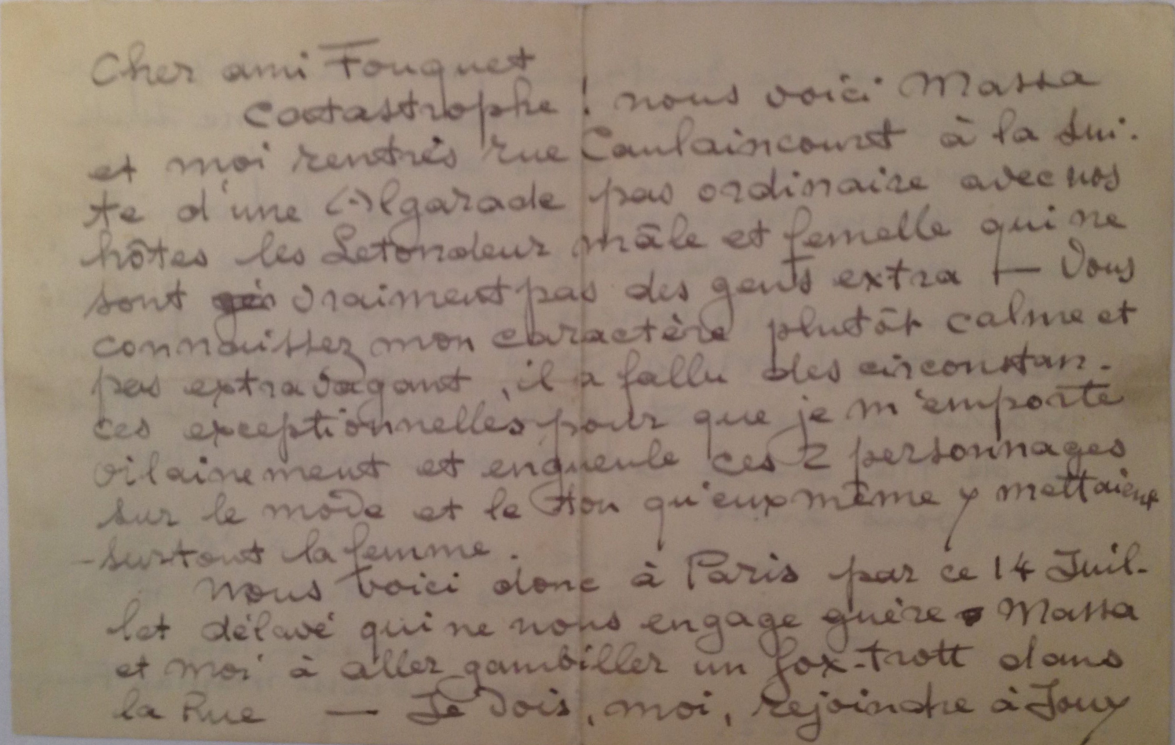 Cher ami Fouquet
Catastrophe ! nous voici Massa
et moi rentrés rue Caulaincourt à la sui-
te d'une algarade pas ordinaire avec nos
hôtes les Letondeur mâle et femelle qui ne
sont vraiment pas des gens extra — Vous
connaissez mon caractère plutôt calme et
pas extravagant, il a fallu des circonstan-
ces exceptionnelles pour que je m'emporte
vilainement et engueule ces 2 personnages
sur le mode et le ton qu'eux même y mettaient
- surtout la femme.
Nous voici donc à Paris par ce 14 Juil-
let délavé qui ne nous engage guère Massa
et moi à aller gambiller un fox-trott dans
la Rue — Je dois, moi, rejoindre à Jouy